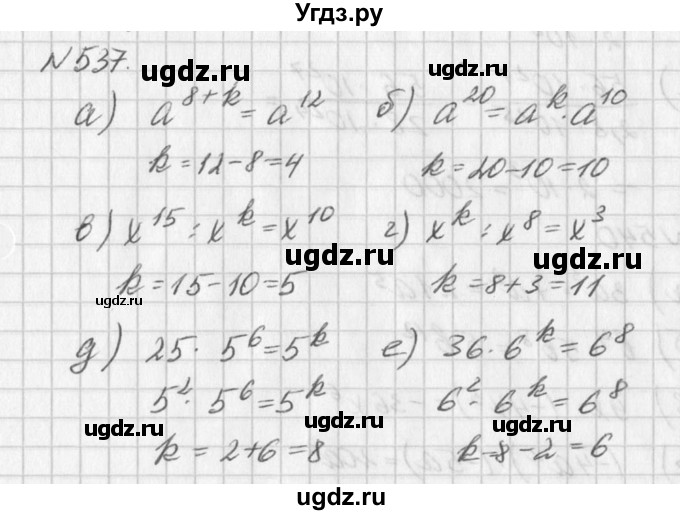 Угдз.ру
№537.
а) a^{8+k} = a^{12} б) a^{20} = a^k · a^{10}
k = 12 - 8 = 4 k = 20 - 10 = 10
в) x^{15} : x^k = x^{10} г) x^k : x^8 = x^3
k = 15 - 10 = 5 k = 8 + 3 = 11
д) 25 · 5^6 = 5^k е) 36 · 6^k = 6^8
5^2 · 5^6 = 5^k 6^2 · 6^k = 6^8
k = 2 + 6 = 8 k - 8 - 2 = 6
ugdz.ru
ugdz.ru
ugdz.ru
ugdz.ru
ugdz.ru
ugdz.ru
ugdz.ru
ugdz.ru
ugdz.ru
ugdz.ru